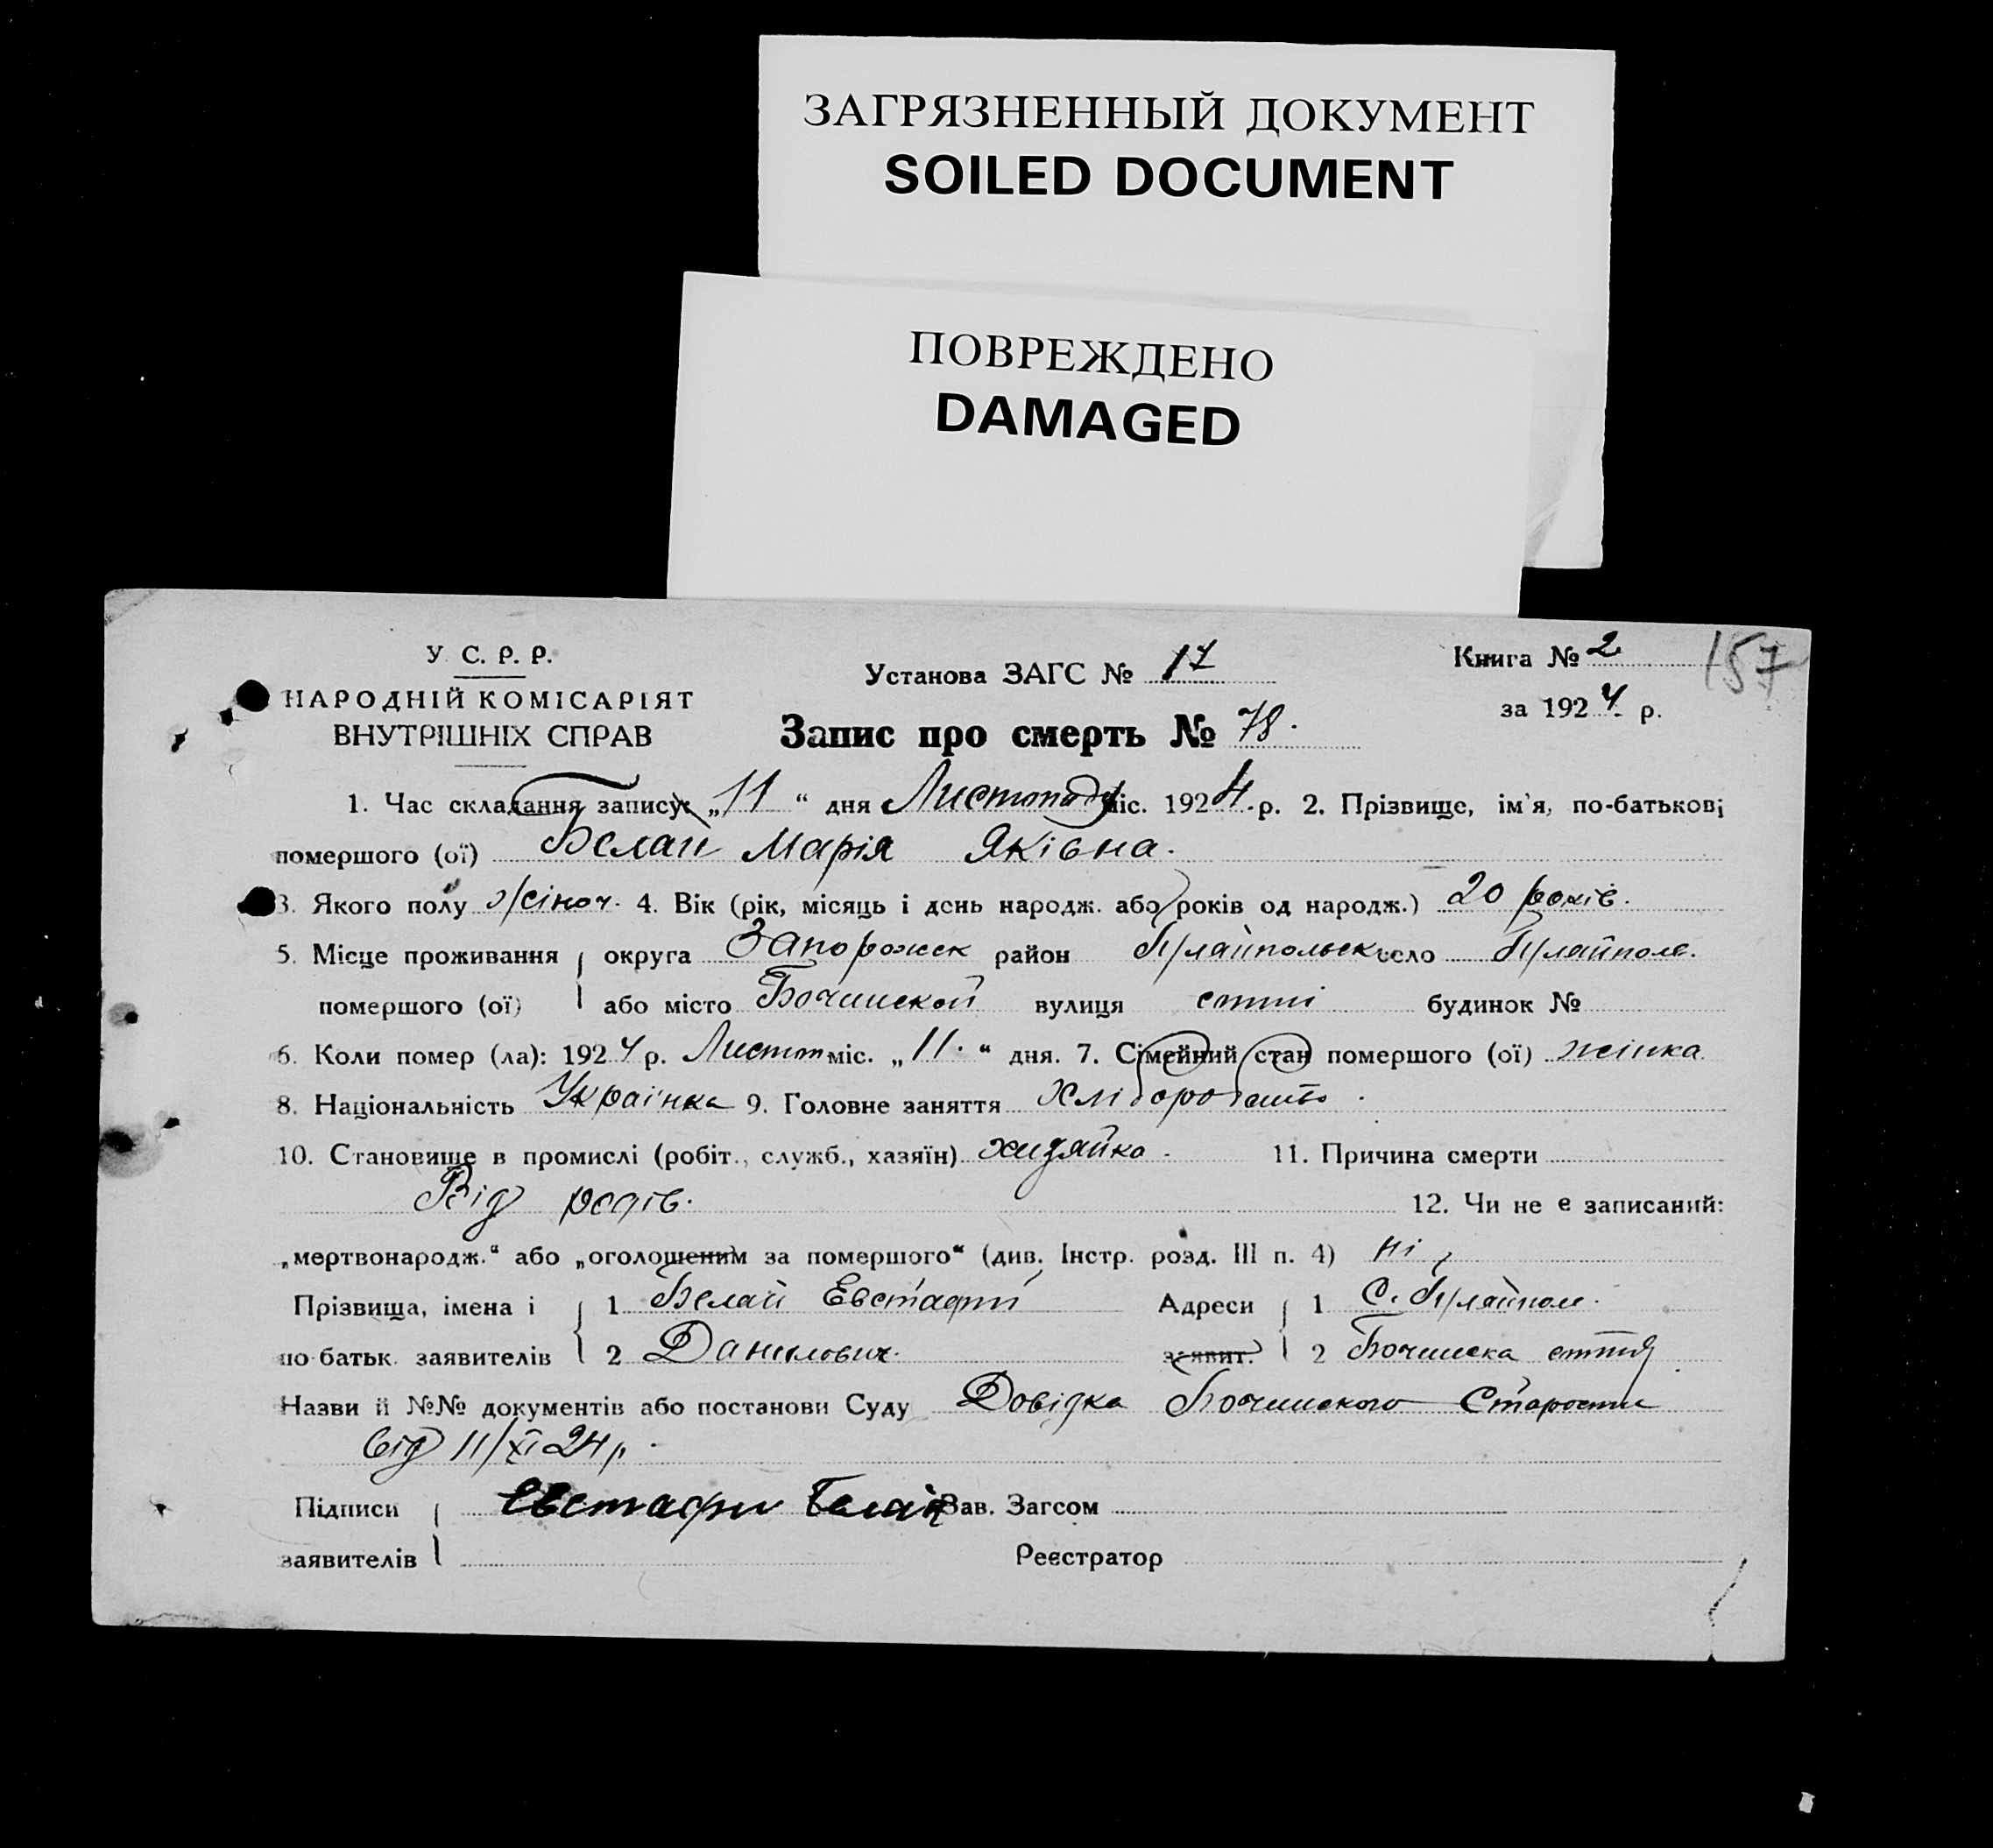 ЗАГРЯЗНЕННЫЙ ДОКУМЕНТ
SOILED DOCUMENT
ПОВРЕЖДЕНО
DAMAGED
У.С.Р.Р.
НАРОДНІЙ КОМІСАРІЯТ
ВНУТРІШНІХ СПРАВ
Установа ЗАГС № 17
Запис про смерть № 78.
Книга № 2
за 1924 р.
157
1. Час складання запису: „11“ дня Листопаду міс. 1924 р. 2. Прізвище, ім'я, по-батькові
помершого (ої) Белай Марія Яківна.
3. Якого полу жіноч. 4. Вік (рік, місяць і день народж. або років од народж.) 20 років.
5. Місце проживання округа Запорожск район Гуляйпольск село Гуляйполе.
помершого (ої) або місто Бочанской вулиця сотні будинок №
6. Коли помер (ла): 1924 р. Листоп міс. „11.“ дня. 7. Сімейний стан помершого (ої) жінка
8. Національність Українка 9. Головне заняття Хлібороб
10. Становище в промислі (робіт., служб., хазяїн) хазяйка. 11. Причина смерти
Від родів. 12. Чи не є записаний:
„мертвонародж.“ або „оголошеним за помершого“ (див. Інстр. розд. III п. 4) ні
Прізвища, імена і 1 Белай Евстафій Адреси 1 С. Гуляйполе.
по-батьк. заявителів 2 Данилович. заявит. 2 сотня
Назви й №№ документів або постанови Суду Довідка Старости
від 11/XI 24 р.
Підписи Евстафи Белай Зав. Загсом
заявителів Реєстратор